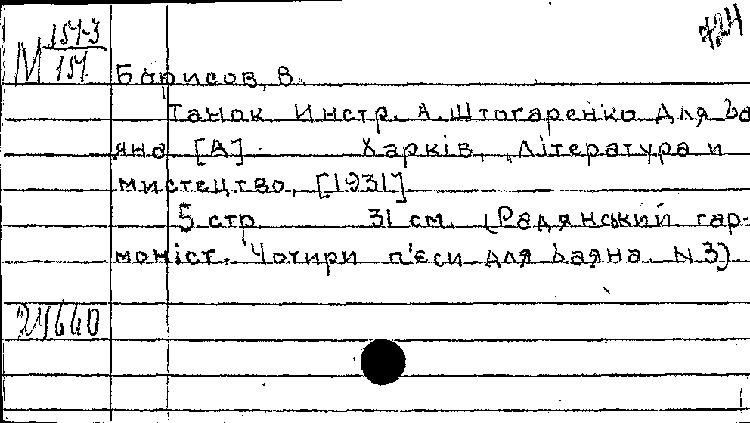 М 154-3
151
724
Борисов, В.
Танок. Инстр. А. Штогаренко для ба
яна [А]. Харків, „Література и
мистецтво, [1931]
5 стр. 31 см. (Радянський гар-
моніст. Чотири п'єси для баяна. N 3)
29660